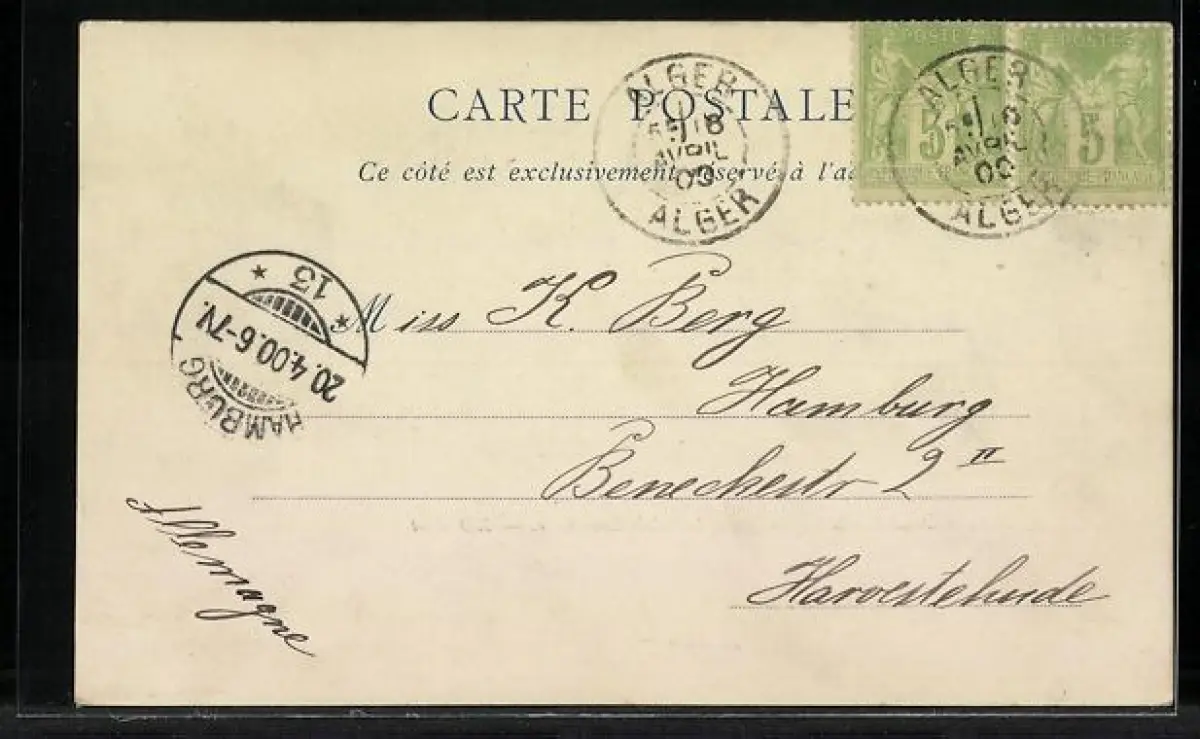 CARTE POSTALE
Ce côté est exclusivement réservé à l'a
ALGER
16
AVRIL
00
ALGER
POSTES
5
POSTES
5
ALGER
AVRIL
00
ALGER
* 13 *
20.4.00.6-7N.
HAMBURG
Miss K. Berg
Hamburg
Benechestr 2 II
Harvestehude
Allemagne